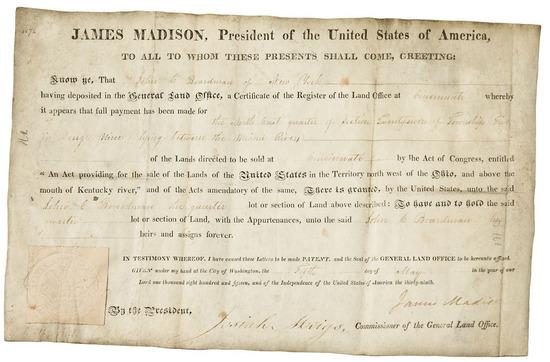 JAMES MADISON, President of the United States of America,
TO ALL TO WHOM THESE PRESENTS SHALL COME, GREETING:
Know ye, That John C Boardman of New York
having deposited in the General Land Office, a Certificate of the Register of the Land Office at Cincinnati whereby
it appears that full payment has been made for
the North East quarter of Section of Township
in Range Nine lying between the Miami Rivers
of the Lands directed to be sold at Cincinnati by the Act of Congress, entitled
“An Act providing for the sale of the Lands of the United States in the Territory north west of the Ohio, and above the
mouth of Kentucky river,” and of the Acts amendatory of the same, There is granted, by the United States, unto the said
John C Boardman the quarter lot or section of Land above described: To have and to hold the said
quarter lot or section of Land, with the Appurtenances, unto the said John C Boardman his
heirs and assigns forever.
IN TESTIMONY WHEREOF, I have caused these Letters to be made PATENT, and the Seal of the GENERAL LAND OFFICE to be hereunto affixed.
GIVEN under my hand at the City of Washington, the day of May in the year of our
Lord one thousand eight hundred and fifteen, and of the Independence of the United States of America the thirty-ninth.
James Madison
By the President,
Josiah Meigs, Commissioner of the General Land Office.